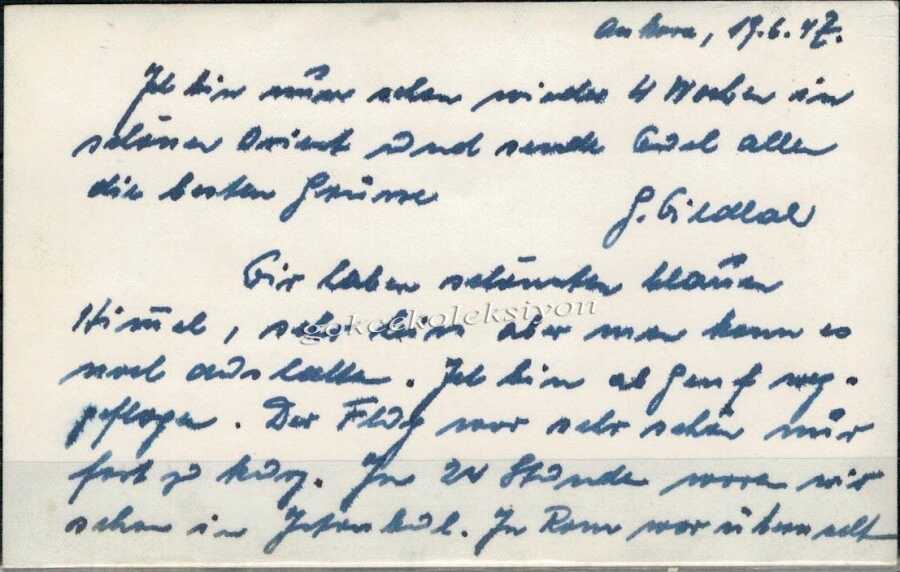 Ankara, 19.6.47.
Ich bin nun schon wieder 4 Wochen im
schönen Orient und sende Euch allen
die besten Grüsse
G.
Wir haben schönsten blauen
Himmel, sehr aber man kann es
noch aushalten. Ich bin ab Genf weg-
geflogen. Der Flug war sehr schön nur
fast zu kurz. In 24 Stunden waren wir
schon in Istanbul. In Rom war
gokcekoleksiyon